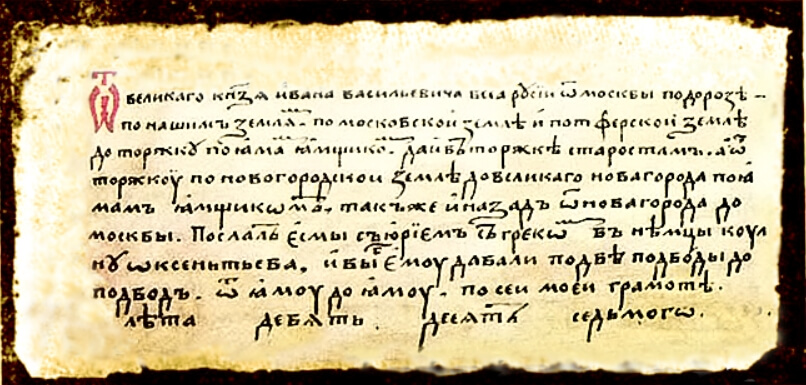 Ѿ великаго кн҃зѧ ивана васильевича всеѧ русіи ѿ москвы подорозѣ –
по нашимъ землѧⷨ. по московской землѣ и по тферской землѣ
до торжку по ꙗмⷨа ꙗмщикоⷨ. да и въ торжкѣ старостам. а ѿ
торжкоу по новогородской землѣ до великаго новагорода по ꙗ
мамъ ꙗмщикѡмъ. такъ же и назадъ ѿ новагорода до
москвы. Послалъ есмы съ юріемъ съ грекоⷨ въ нѣмцы коул
ку ѡксентьева. и вы емоу давали подвѣ подводы до
подводъ. ѿ ꙗмоу до ꙗмоу. по сеи моеи грамотѣ.
лѣта девять десятъ седьмогѡ.